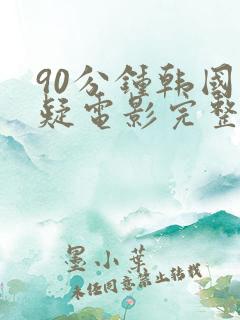 90分鍾韩国
疑電影完整
墨小葉
未经同意禁止转载